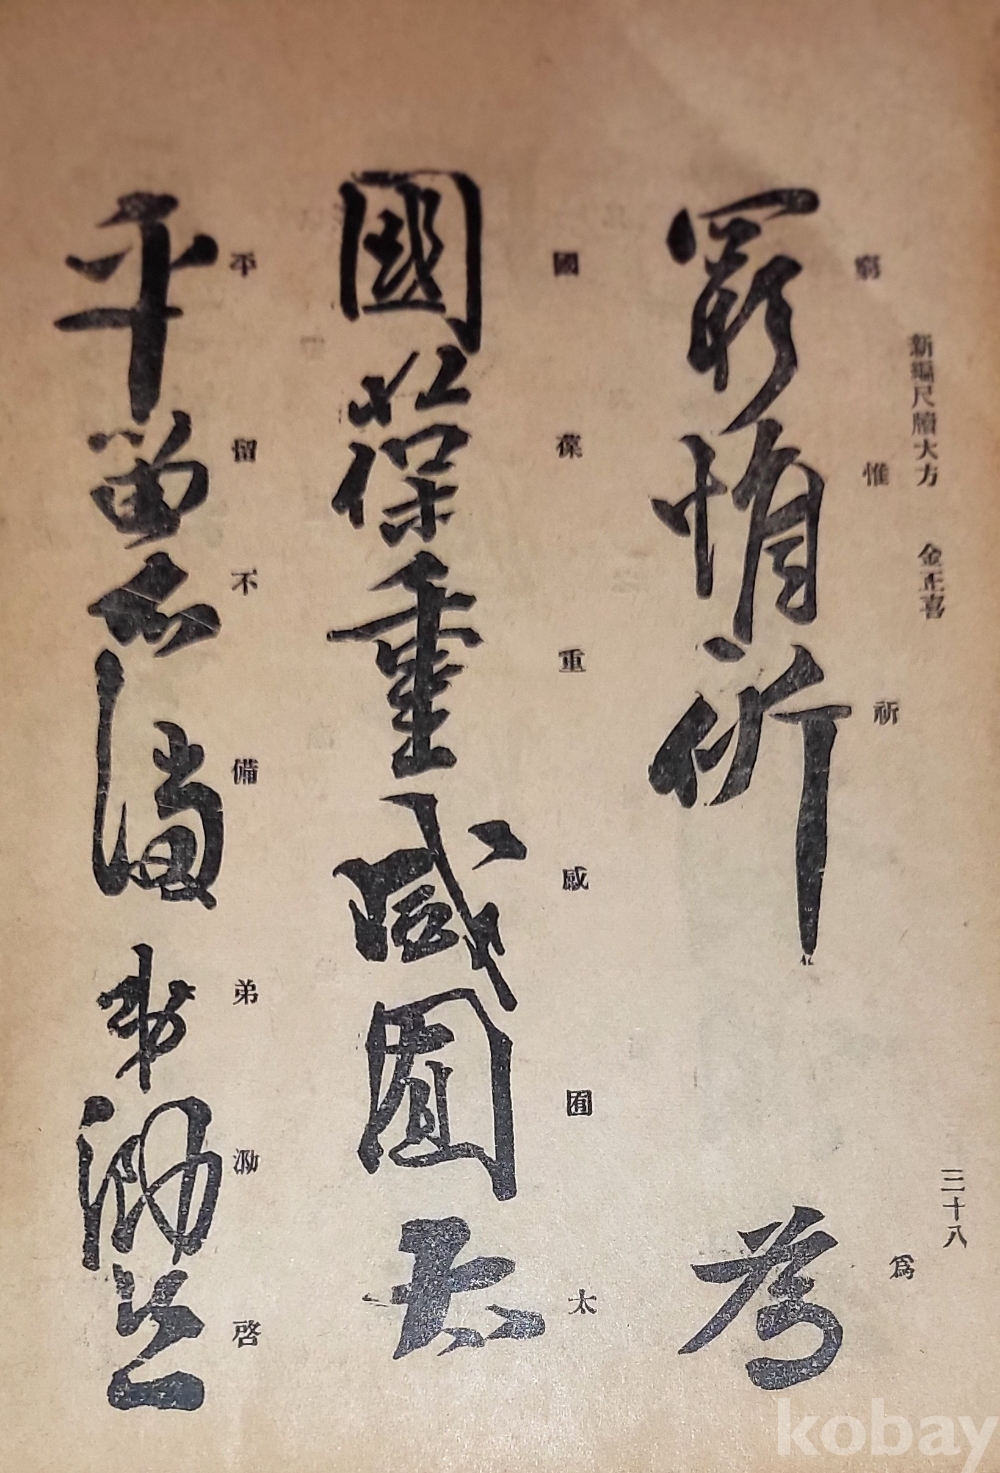 新編尺牘大方　金正喜　三十八
窮惟祈　爲
窮惟祈　爲
國葆重感囿太
國葆重感囿太
平留不備弟泐啓
平留不備弟泐啓
kobay